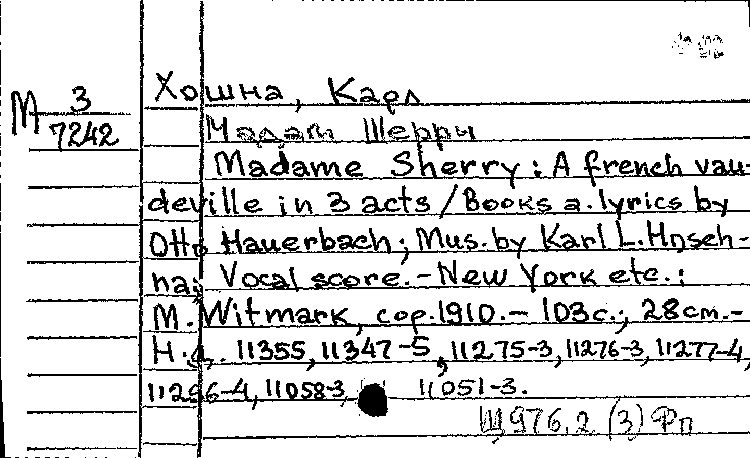 Хошна, Карл
М 3
7242
Мадам Шерри
Madame Sherry : A french vau-
deville in 3 acts / Books a. lyrics by
Otto Hauerbach ; Mus. by Karl L. Hosch-
na; Vocal score. - New York etc. :
M. Witmark, cop. 1910. - 103 с.; 28 см. -
Н.д. 11355, 11347-5, 11275-3, 11276-3, 11277-4,
11266-4, 11058-3, 11051-3.
Щ976.2 (3) Фп